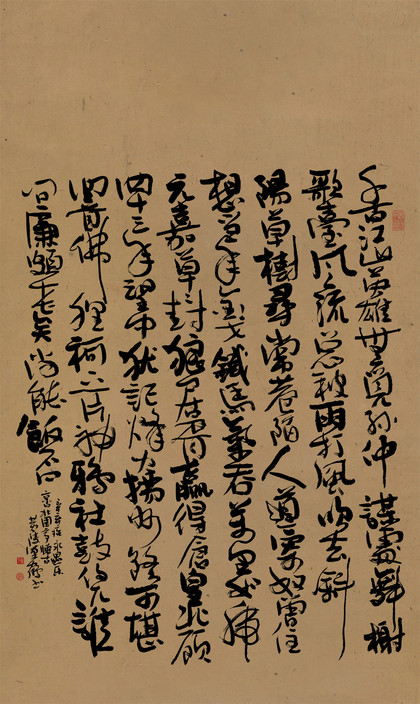 千古江山英雄無覓孫仲謀處舞榭
歌臺风流总被雨打风吹去斜
陽草樹尋常巷陌人道寄奴曾住
想當年金戈鐵馬氣吞萬里如虎
元嘉草草封狼居胥贏得倉皇北顾
四十三年望中犹記烽火揚州路可堪
回首佛狸祠下一片神鴉社鼓凭誰
问廉頗老矣尚能飯否
辛弃疾永遇乐
京口北固亭怀古